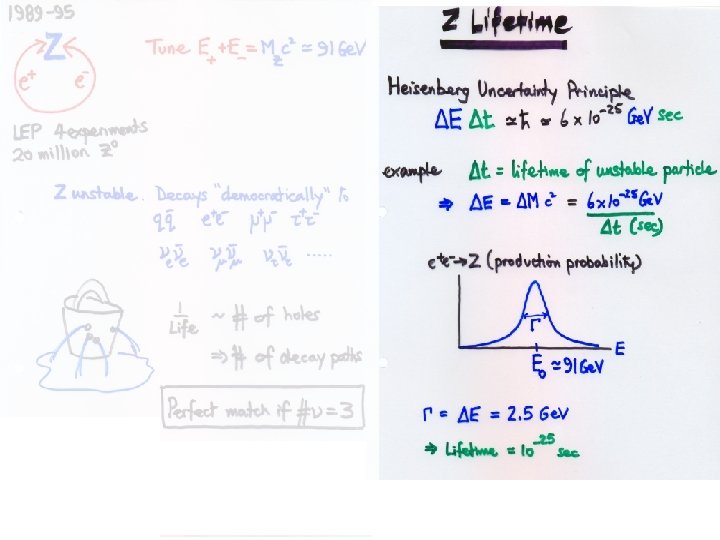 1989-95
Z
e⁺ e⁻
Tune E₊+E₋ = M_Z c² ≃ 91 GeV
LEP 4 experiments
20 million Z⁰
Z unstable. Decays "democratically" to
qq̄ e⁺e⁻ μ⁺μ⁻ τ⁺τ⁻
νₑν̄ₑ ν_μν̄_μ ν_τν̄_τ .....
1/Life ~ # of holes
⇒ # of decay paths
Perfect match if #ν = 3
Z Lifetime
Heisenberg Uncertainty Principle
ΔE Δt ≃ ħ ≃ 6 x 10⁻²⁵ GeV sec
example Δt = lifetime of unstable particle
⇒ ΔE = ΔM c² = 6x10⁻²⁵ GeV / Δt (sec)
e⁺e⁻→Z (production probability)
Γ
E
E₀ ≃ 91 GeV
Γ = ΔE = 2.5 GeV
⇒ Lifetime = 10⁻²⁵ sec